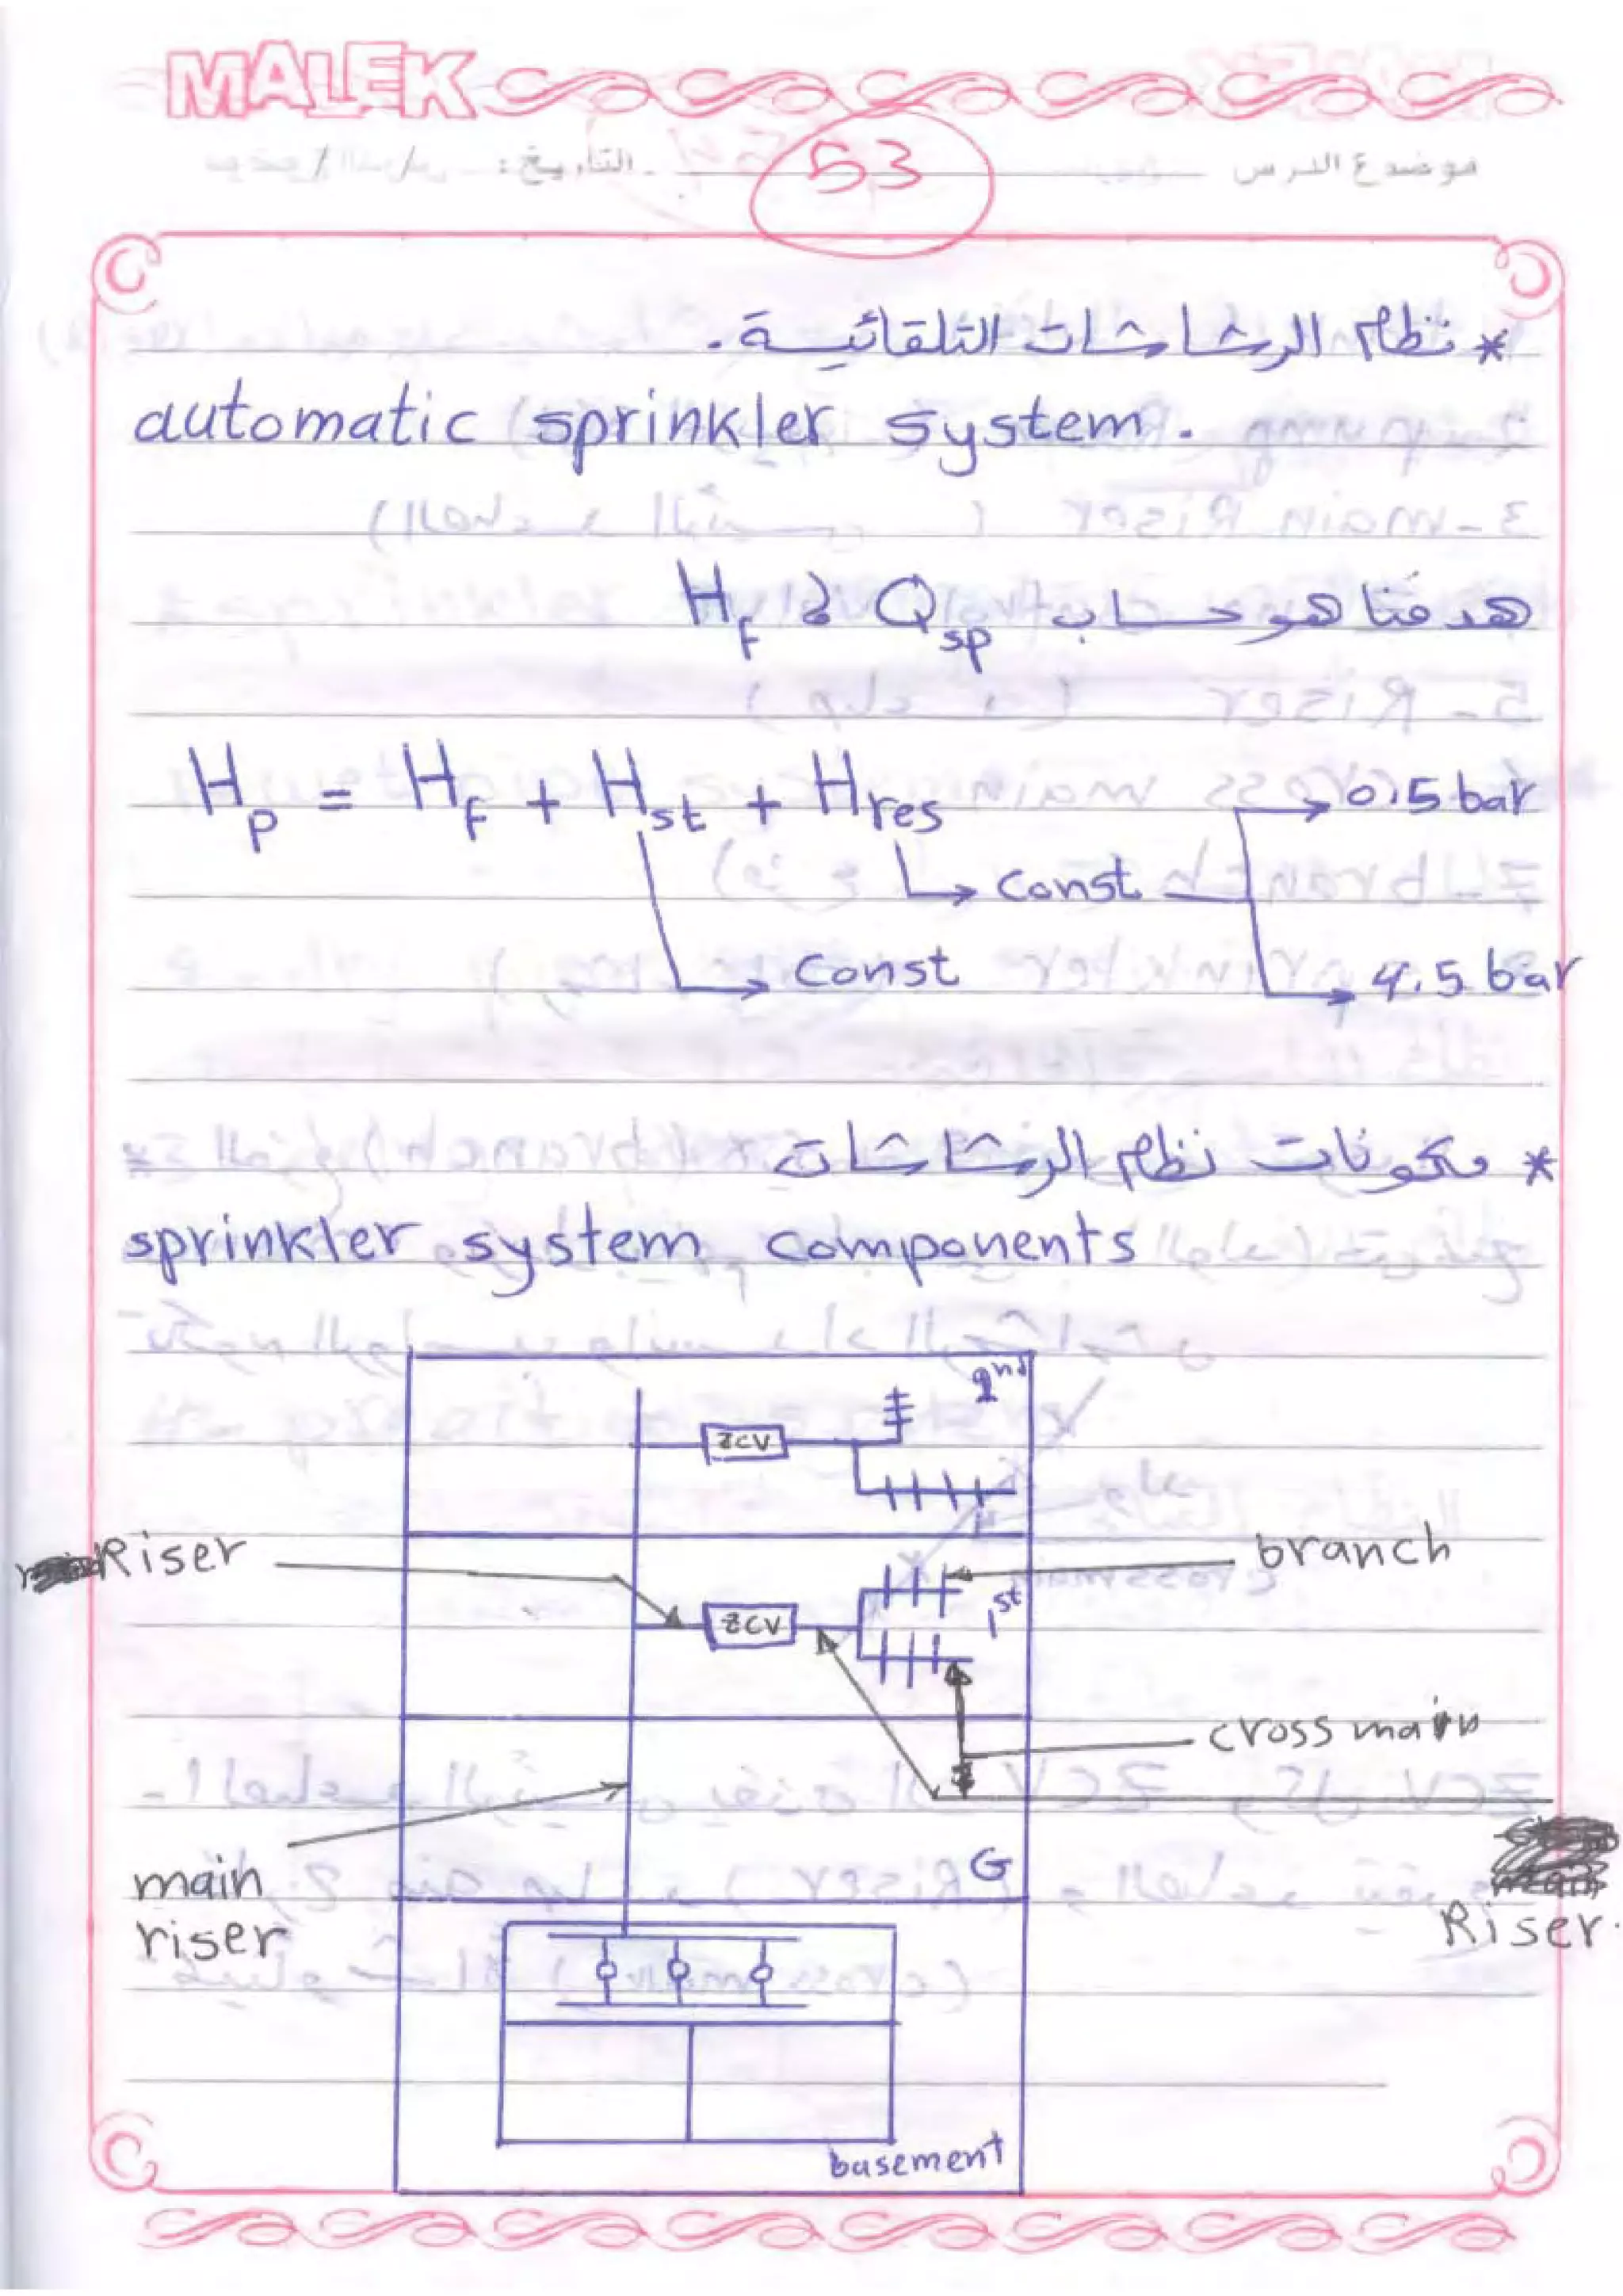 MALEK
موضوع الدرس
التأريخ :
53
* نظام الرشاشات التلقائية .
automatic sprinkler system .
هدفنا هو حساب Qsp & Hf
Hp = Hf + Hst + Hres
0.5 bar
const
const
4.5 bar
* مكونات نظام الرشاشات
sprinkler system components
2nd
ZCV
Riser
branch
ZCV
1st
cross main
main
riser
G
Riser.
basement